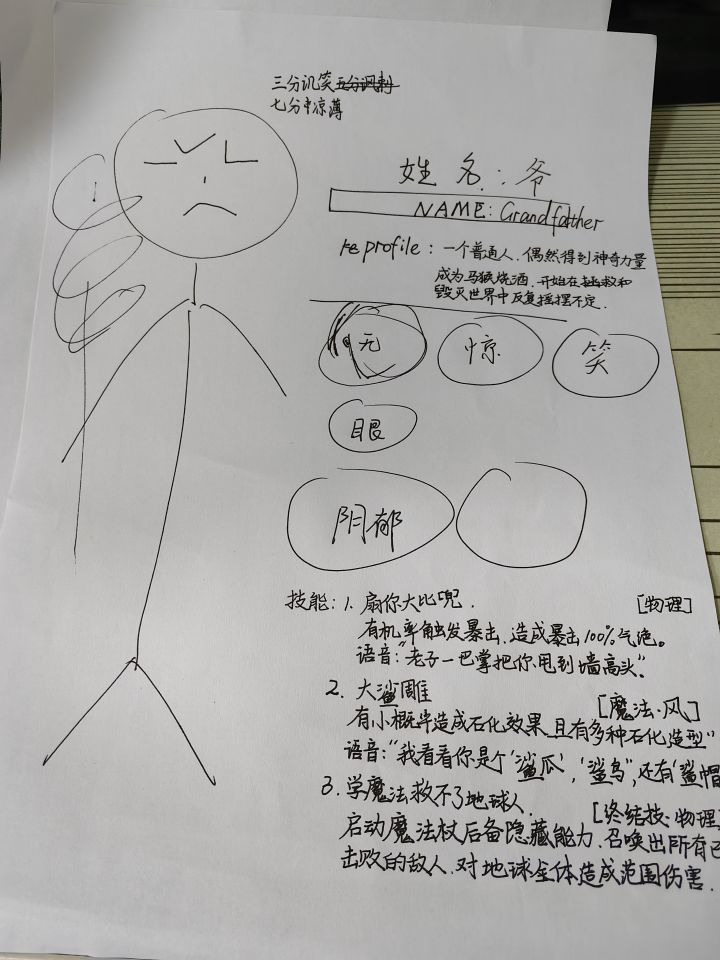 三分讥笑五分讽刺
七分中凉薄
姓名:爷
NAME: Grandfather
profile:一个普通人,偶然得到神奇力量
成为马猴烧酒,开始在拯救和
毁灭世界中反复摇摆不定.
无
惊
笑
眼
阴郁
技能:1. 扇你大比兜. [物理]
有机率触发暴击,造成暴击100%气绝。
语音:"老子一巴掌把你甩到墙高头".
2. 大鲨雕 [魔法·风]
有小概率造成石化效果,且有多种石化造型"
语音:"我看看你是个'鲨瓜','鲨鸟',还有'鲨帽
3. 学魔法救不了地球人. [终结技:物理]
启动魔法杖后备隐藏能力,召唤出所有已
击败的敌人,对地球全体造成范围伤害.